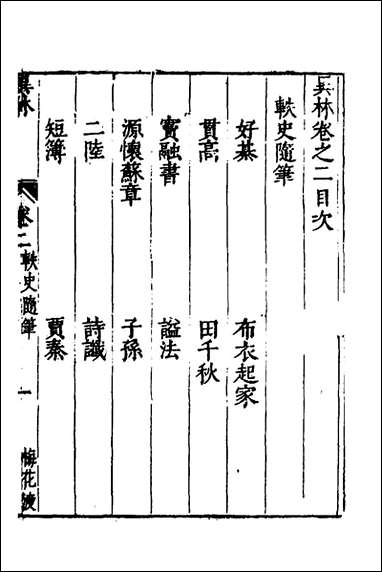 吳林卷之二目次
軼史隨筆
好棊 布衣起家
貫高 田千秋
竇融書 謚法
源懷蘇章 子孫
二陸 詩讖
短簿 賈秦
卷二 軼史隨筆 一 梅花渡